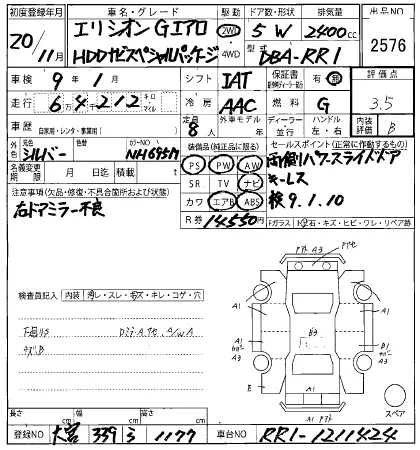 初度登録年月
車名・グレード
駆動
ドア数・形状
排気量
出品NO
20/11月
エリシオン Gエアロ
HDDナビスペシャルパッケージ
2WD
4WD
5 W
2400cc
型式 DBA-RR1
2576
車検
9年 1月
シフト
IAT
保証書
有・無
評価点
3.5
走行
6万4千212
キロ
マイル
冷房
AAC
燃料
G
車歴
自家用・レンタ・事業用( )
定員
8人
外車モデル
年
ディーラー
並行
ハンドル
左・右
内装評価
B
外色
元色
シルバー
色替
カラーNO
NH695M
装備品(純正品に限る)
セールスポイント(正常に作動するもの)
名義変更期限
月 日
積載量
t
PS PW AW
SR TV ナビ
カワ エアB ABS
両側パワースライドドア
キーレス
検 9.1.10
注意事項(欠品・修復・不具合箇所および状態)
右ドアミラー不良
R券
14550円
Fガラス
飛石・キズ・ヒビ・ワレ・リペア跡
検査員記入
内装
汚レ・スレ・キズ・キレ・コゲ・穴
下廻りS
キズB
A3
A1
A1
A1
A3
B3
B1
A1
A3
E
A1
スペア
長さ cm
幅 cm
高さ cm
登録NO
大宮 339 ろ 1177
車台NO
RR1-1211424